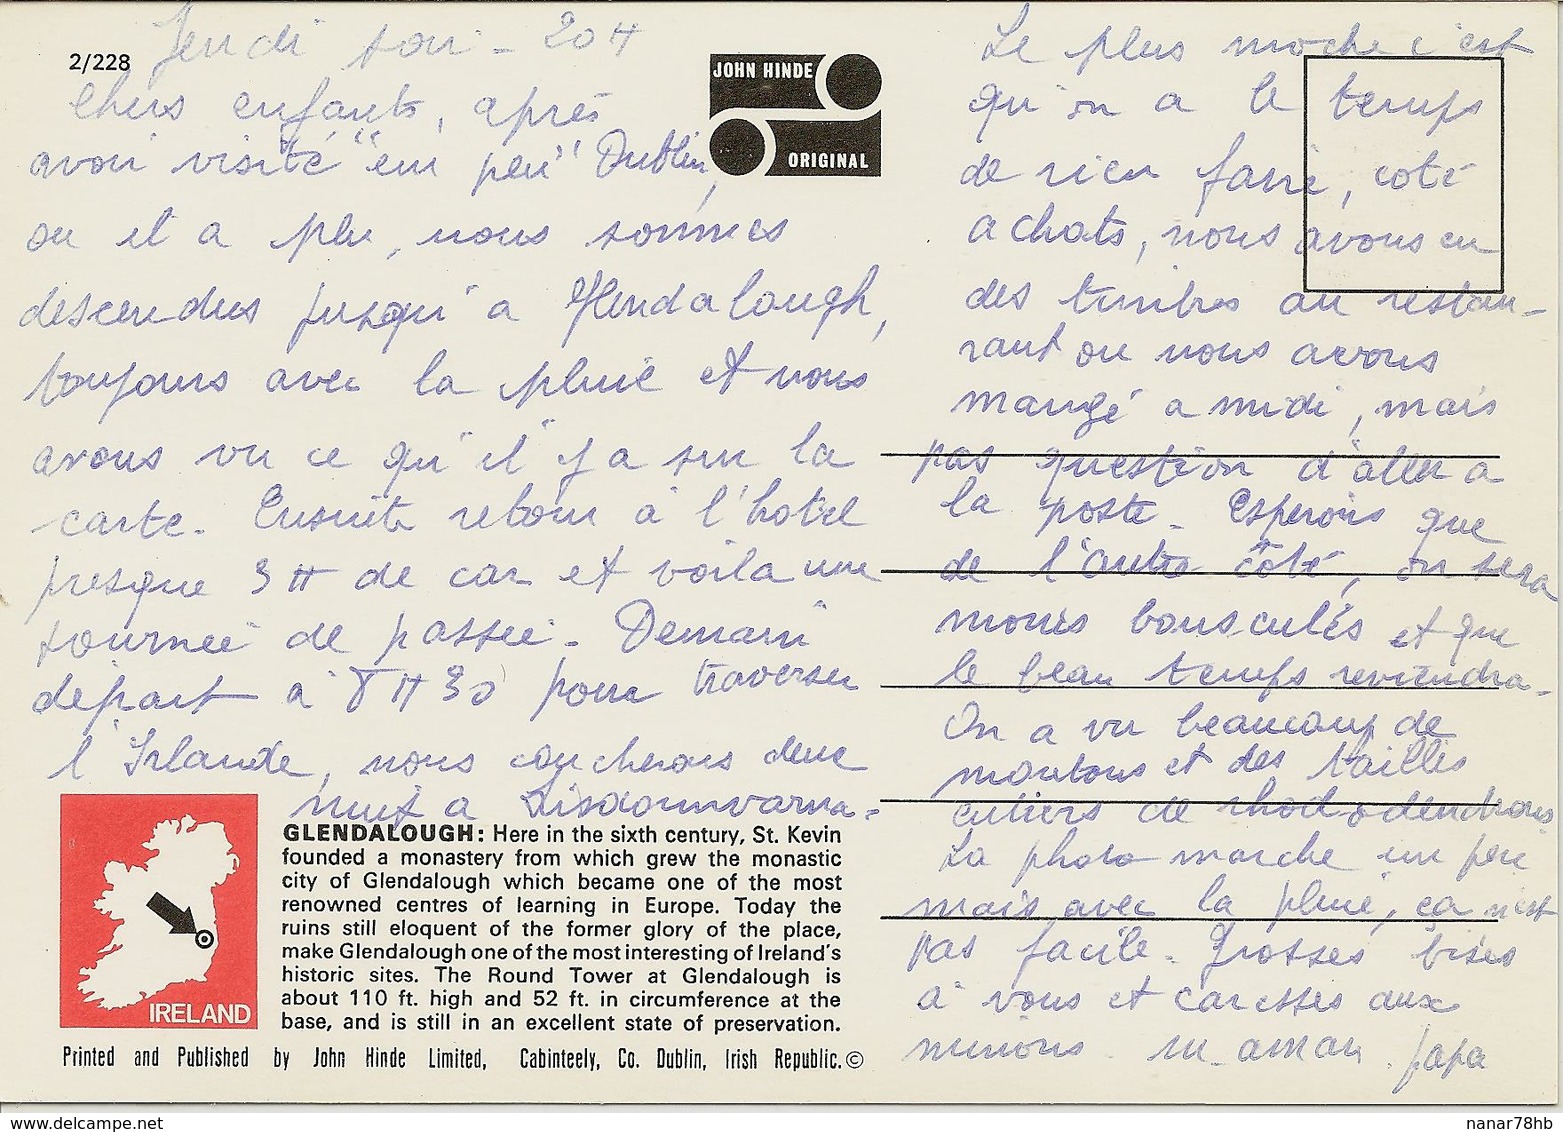 2/228
Jeudi soir - 20 4
Chers enfants, après
avoir visité "un peu" Dublin,
ou il a plu, nous sommes
descendus jusqu'a Glendalough,
toujours avec la pluie et nous
avons vu ce qu'il y a sur la
carte. Ensuite retour à l'hotel
presque 3H de car et voila une
journée de passée. Demain
départ à 8H30 pour traverser
l'Irlande, nous coucherons deux
nuit a Lisdoonvarna.
JOHN HINDE
ORIGINAL
Le plus moche c'est
qu'on a le temps
de rien faire, coté
achats, nous avons eu
des timbres au restau-
rant ou nous avons
mangé a midi, mais
pas question d'aller a
la poste. Esperons que
de l'autre côté, on sera
moins bousculés et que
le beau temps reviendra.
On a vu beaucoup de
moutons et des taillis
entiers de rhododendrons
La photo marche un peu
mais avec la pluie, ça n'est
pas facile. Grosses bises
à vous et caresses aux
minous. maman. papa
GLENDALOUGH: Here in the sixth century, St. Kevin
founded a monastery from which grew the monastic
city of Glendalough which became one of the most
renowned centres of learning in Europe. Today the
ruins still eloquent of the former glory of the place,
make Glendalough one of the most interesting of Ireland's
historic sites. The Round Tower at Glendalough is
about 110 ft. high and 52 ft. in circumference at the
base, and is still in an excellent state of preservation.
IRELAND
Printed and Published by John Hinde Limited, Cabinteely, Co. Dublin, Irish Republic.©
www.delcampe.net
nanar78hb